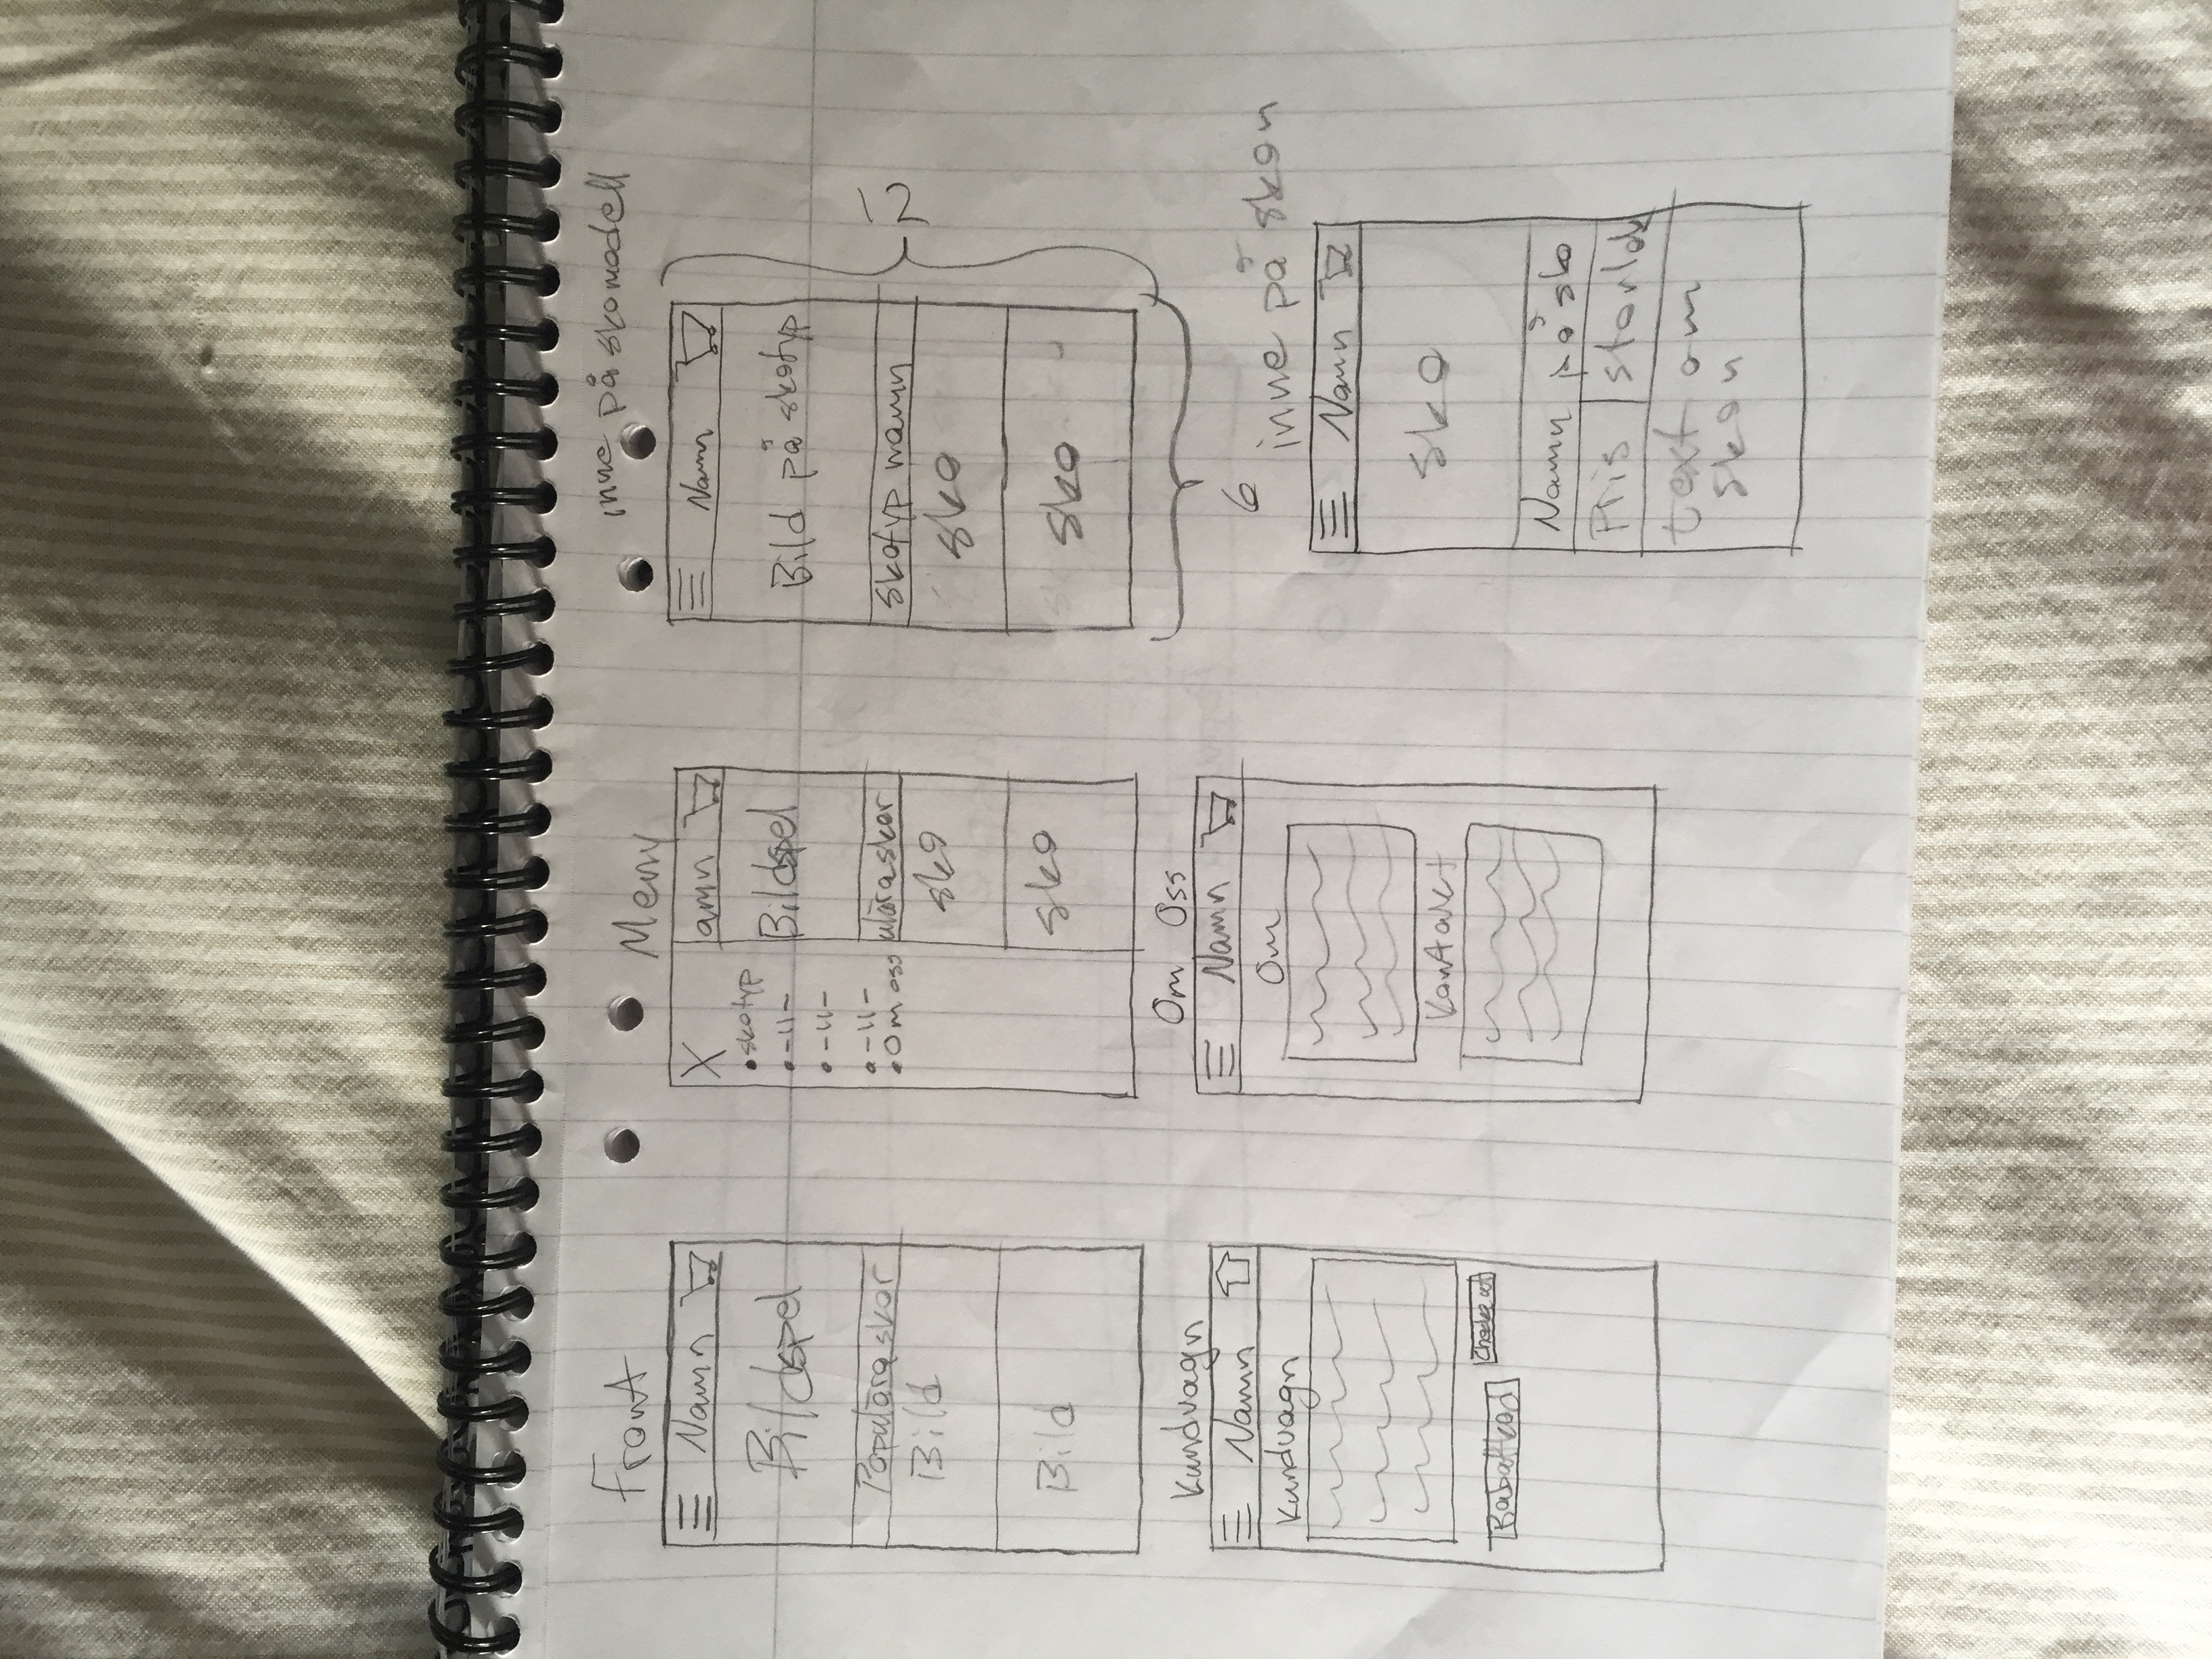 Front
Namn
Bildspel
Populära skor
Bild
Bild
Meny
X
amn
• skotyp
• -11-
• -11-
• -11-
• Om oss
Bildspel
ulära skor
sko
sko
inne på skomodell
Namn
Bild på skotyp
skotyp namn
sko
sko
12
6
Kundvagn
Namn
Kundvagn
Rabattkod
Om Oss
Namn
Om
Kontakt
inne på skon
Namn
sko
Namn på sko
Pris
storlek
text om
skon